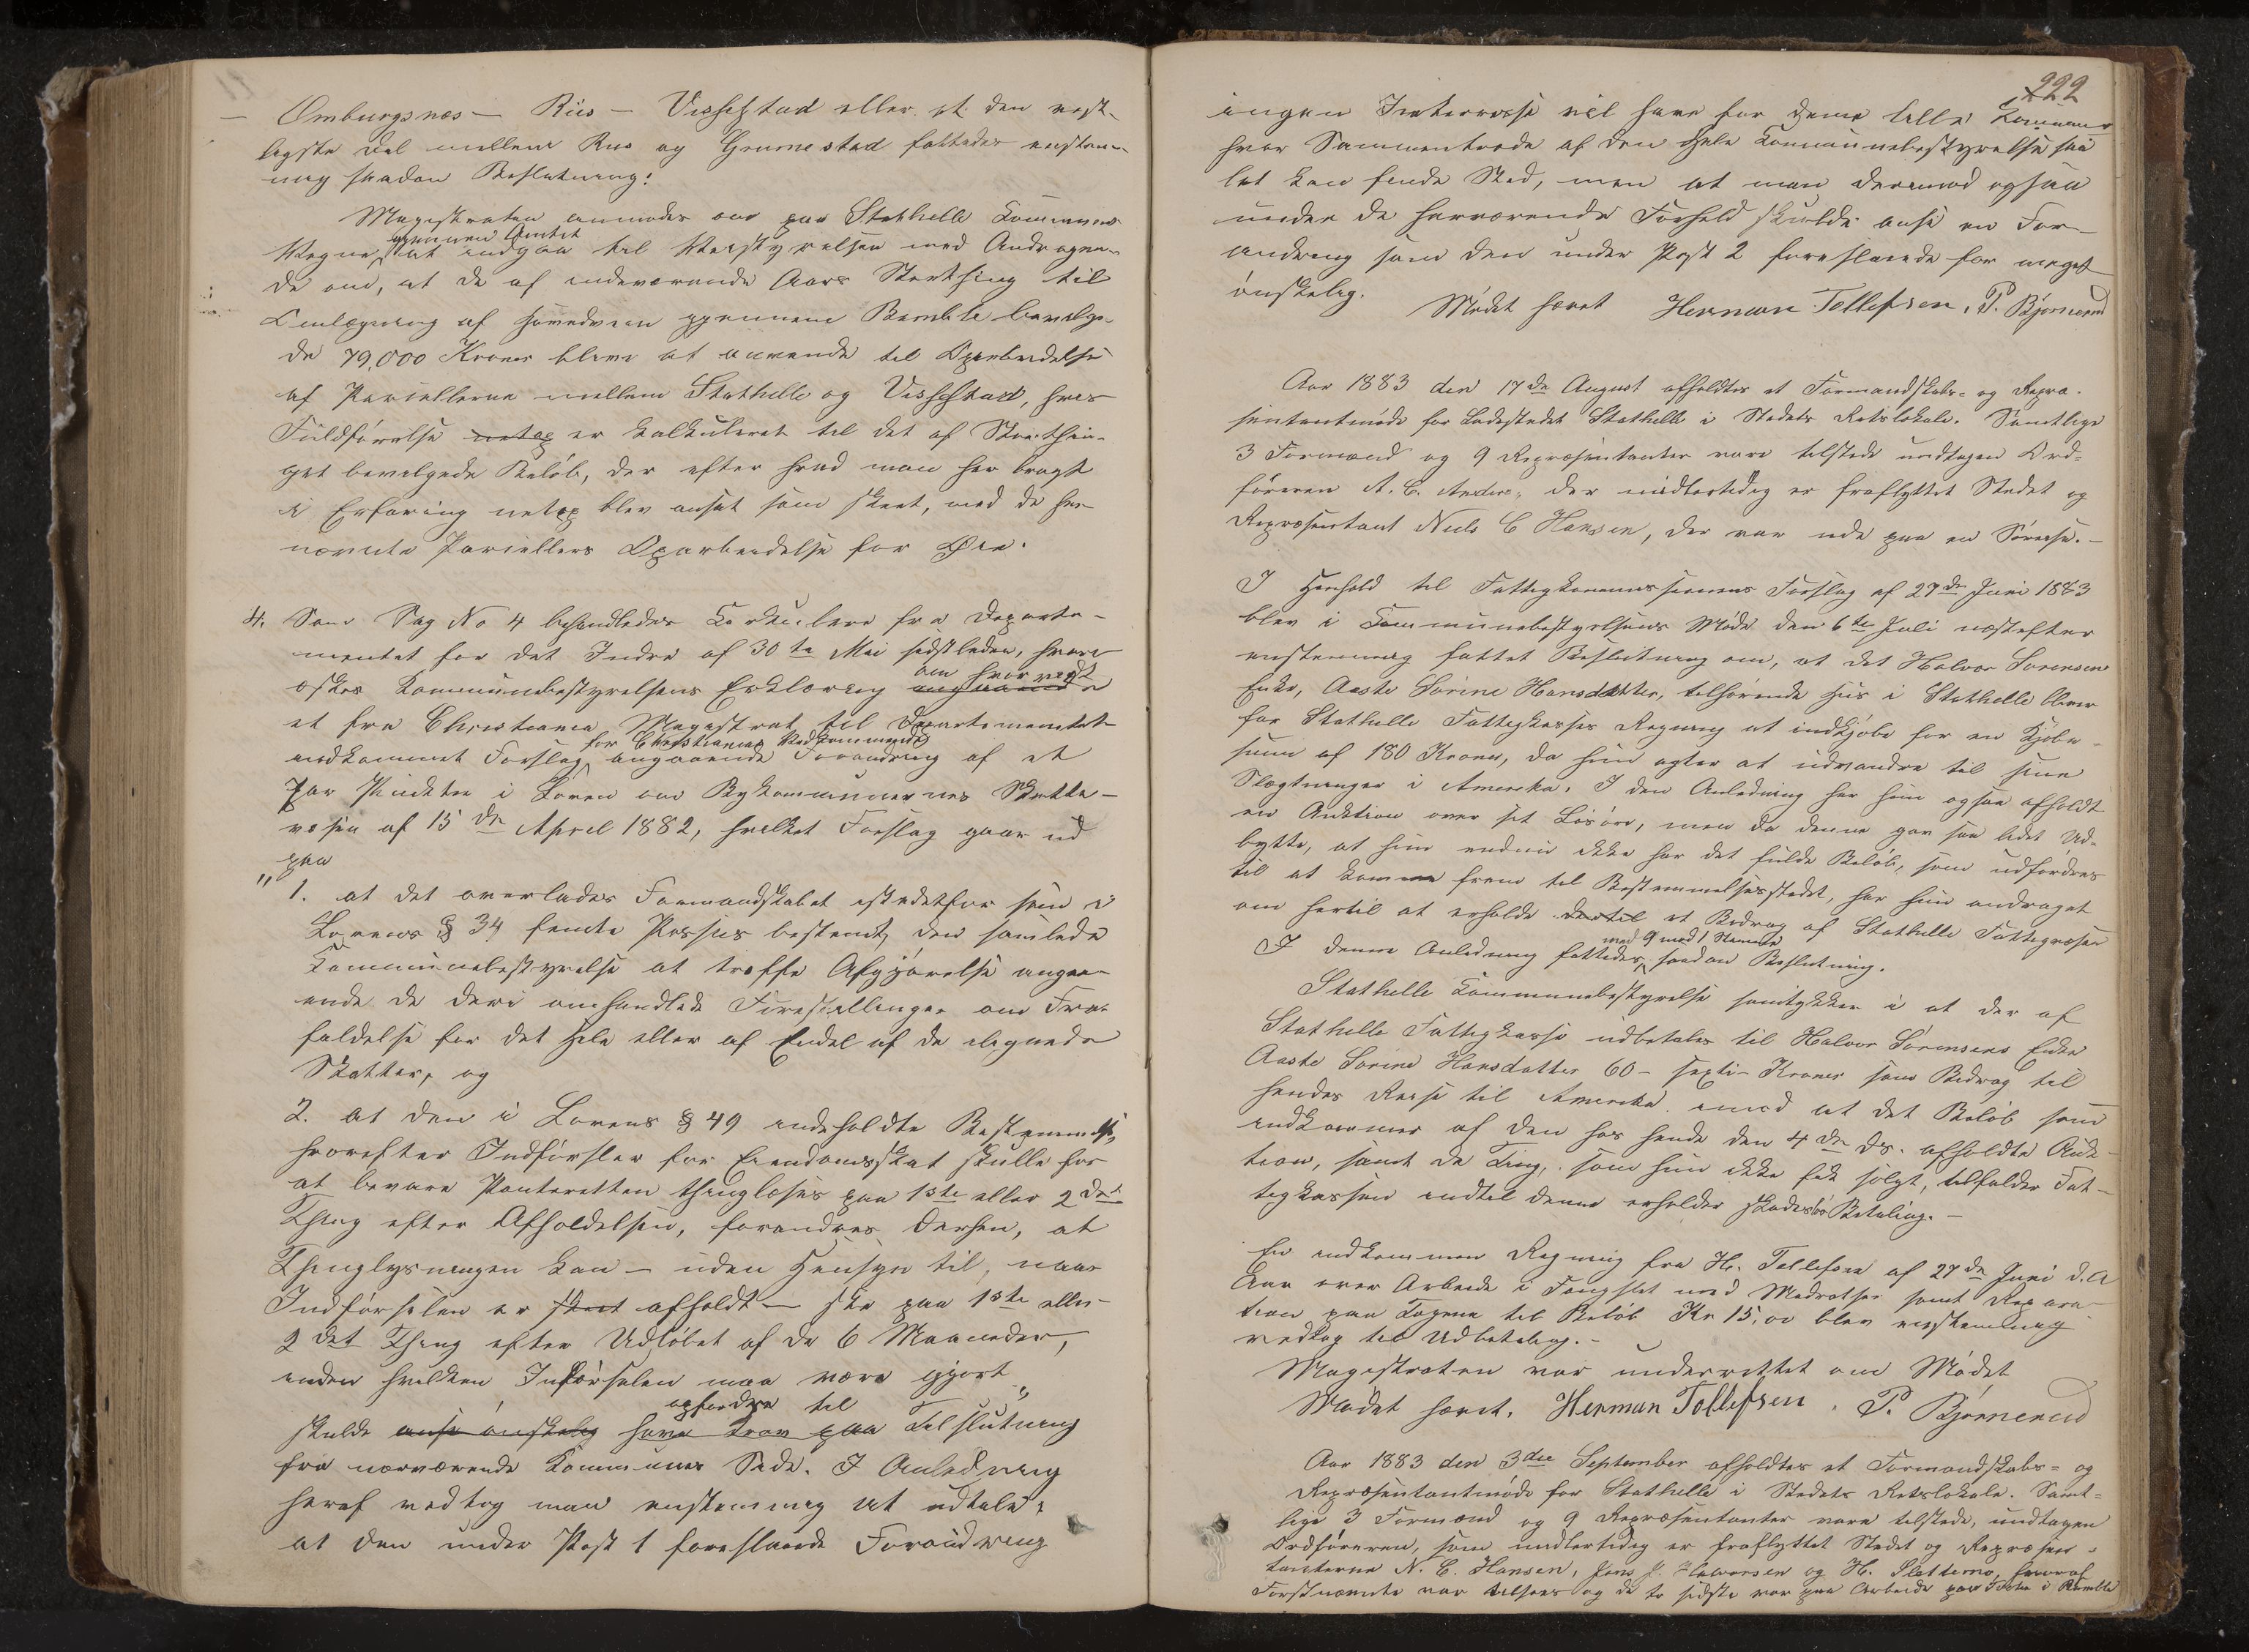 Omburgsnes — Riis — Vissestad eller at den vest-
ligste Del mellem Riis og Grummestad fattedes enstem-
mig saadan Beslutning:
Magistraten anmodes om paa Stathelle Kommunes
gjennem Amtet
Vegne at indgaa til Veistyrelsen med Andragen-
de om, at de af indeværende Aars Storthing til
Omlægning af Hovedveien gjennem Bamble bevilge-
de 79,000 Kroner bliver at anvende til Oparbeidelse
af Parcellerne mellem Stathelle og Vissestad, hvis
Fuldførelse netop er kalkuleret til det af Storthin-
get bevilgede Beløb, der efter hvad man har bragt
i Erfaring netop blev anset som skeet, med de her
nævnte Parcellers Oparbeidelse for Øie.
4. Som Sag No 4 behandledes Cirkulære fra Departe-
mentet for det Indre af 30te Mai sidstleden, hvori
om hvorvidt
æskes Kommunebestyrelsens Erklæring angaaende
et fra Christiania Magistrat til Departementet
for Christianias Vedkommende
indkommet Forslag angaaende Forandring af et
Par Punkter i Loven om Bykommunernes Skatte-
væsen af 15de April 1882, hvilket Forslag gaar ud
paa
" 1. at det overlades Formandskabet istedetfor som i
Lovens § 34 femte Passus bestemt, den samlede
Kommunebestyrelse at træffe Afgjørelse angaa-
ende de deri omhandlede Forestillinger om Fra-
faldelse for det Hele eller af Endel af de ilignede
Skatter, og
2. at den i Lovens § 49 indeholdte Bestemmelse,
hvorefter Indførsler for Eiendomsskat skulle for
at bevare Panteretten thinglæses paa 1ste eller 2det
Thing efter Afholdelsen, forandres derhen, at
Thinglysningen kan — uden Hensyn til, naar
Indførselen er skeet afholdt — ske paa 1ste eller
2det Thing efter Udløbet af de 6 Maaneder,
inden hvilken Indførselen maa være gjort "
opfordre til
skulde anse ønskelig have Krav paa Tilslutning
fra nærværende Kommunes Side. I Anledning
heraf vedtog man enstemmig at udtale:
at den under Post 1 foreslaaede Forandring
222
ingen Interesse vil have for denne lille Kommune
hvor Sammentræde af den hele Kommunebestyrelse saa
let kan finde Sted, men at man derimod ogsaa
under de herværende Forhold skulde anse en For-
andring som den under Post 2 foreslaaede for meget
ønskelig.
Mødet hævet Herman Tollefsen. P. Bjørnerud
Aar 1883 den 17de August afholdtes et Formandskabs- og Repræ-
sentantmøde for Ladestedet Stathelle i Stedets Retslokale. Samtlige
3 Formænd og 9 Repræsentanter vare tilstede undtagen Ord-
føreren A. C. Anders, der midlertidig er fraflyttet Stedet og
Repræsentant Niels C Hansen, der var ude paa en Søreise.—
I Henhold til Fattigkommissionens Forslag af 27de Juni 1883
blev i Kommunebestyrelsens Møde den 6te Juli næstefter
enstemmig fattet Beslutning om, at det Halvor Sørensens
Enke, Aaste Sørine Hansdatter, tilhørende Hus i Stathelle bliver
for Stathelle Fattigkasses Regning at indkjøbe for en Kjøbe-
sum af 180 Kroner, da hun agter at udvandre til sine
Slægtninger i Amerika. I den Anledning har hun ogsaa afholdt
en Auktion over sit Løsøre, men da denne gav saa lidet Ud-
bytte, at hun endnu ikke har det fulde Beløb, som udfordres
til at komme frem til Bestemmelsesstedet, har hun andraget
om hertil at erholde dertil et Bidrag af Stathelle Fattigvæsen
med 9 mod 1 Stemme
I denne Anledning fattedes saadan Beslutning.
Stathelle Kommunebestyrelse samtykker i at der af
Stathelle Fattigkasse udbetales til Halvor Sørensens Enke
Aaste Sørine Hansdatter 60 - sexti - Kroner som Bidrag til
hendes Reise til Amerika imod at det Beløb som
indkommer af den hos hende den 4de ds. afholdte Auk-
tion, samt de Ting, som hun ikke fik solgt, tilfalder Fat-
tigkassen indtil denne erholder skadesløs Betaling.—
En indkommen Regning fra H. Tollefsen af 27de Juni d.A
Aar over Arbeide i Fængslet med Madratser samt Repara-
tion paa Tagene til Beløb Kr 15,00 blev enstemmig
vedtag til Udbetaling.-
Magistraten var underrettet om Mødet
Mødet hævet. Herman Tollefsen. P. Bjørnerud
Aar 1883 den 3die September afholdtes et Formandskabs- og
Repræsentantmøde for Stathelle i Stedets Retslokale. Samt-
lige 3 Formænd og 9 Repræsentanter vare tilstede, undtagen
Ordføreren, som midlertidig er fraflyttet Stedet og Repræsen-
tanterne N. C. Hansen, Jens J. Halvorsen og H. Slettemo, hvoraf
Førstnævnte var tilsøes og de to sidste var paa Arbeide paa i Bamble